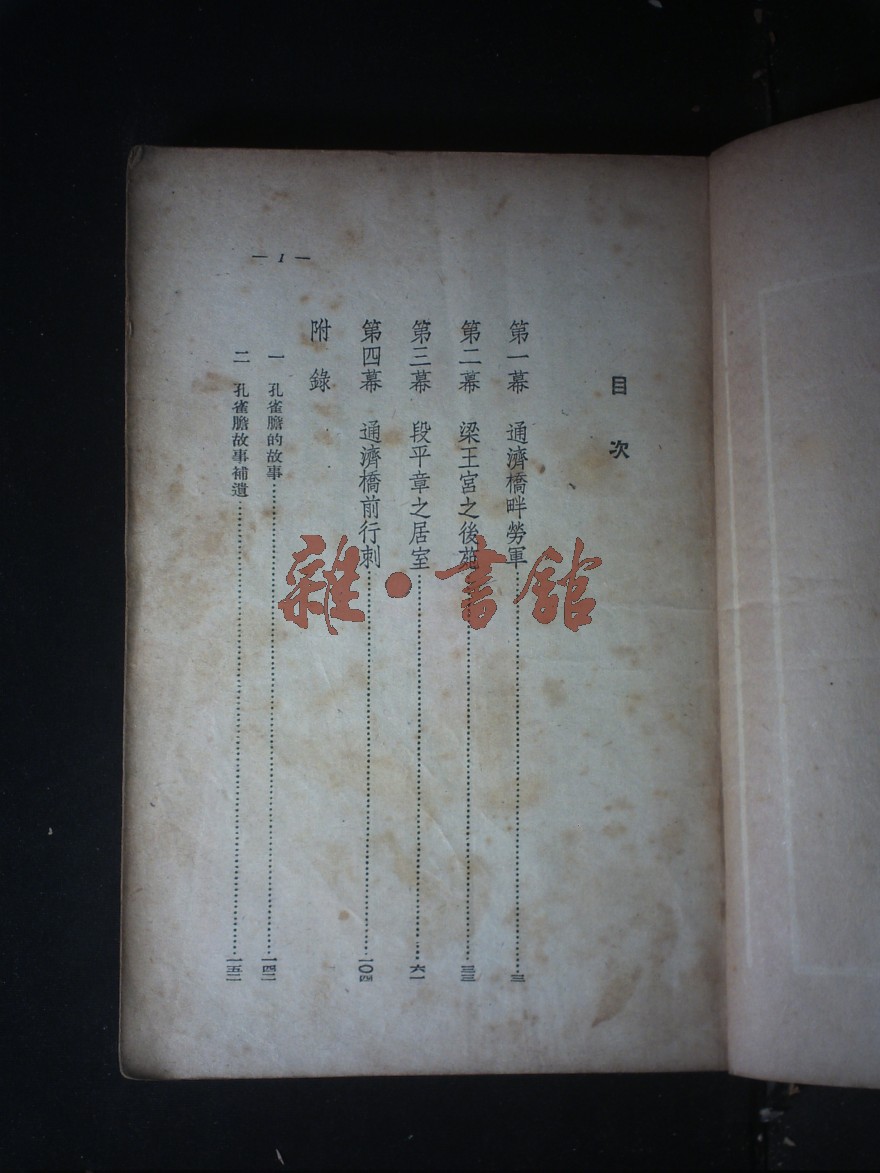 目次
第一幕 通濟橋畔勞軍……三
第二幕 梁王宮之後苑……三三
第三幕 段平章之居室……六一
第四幕 通濟橋前行刺……一〇四
附錄
一 孔雀膽的故事……一四二
二 孔雀膽故事補遺……一五二
— I —
雜·書館